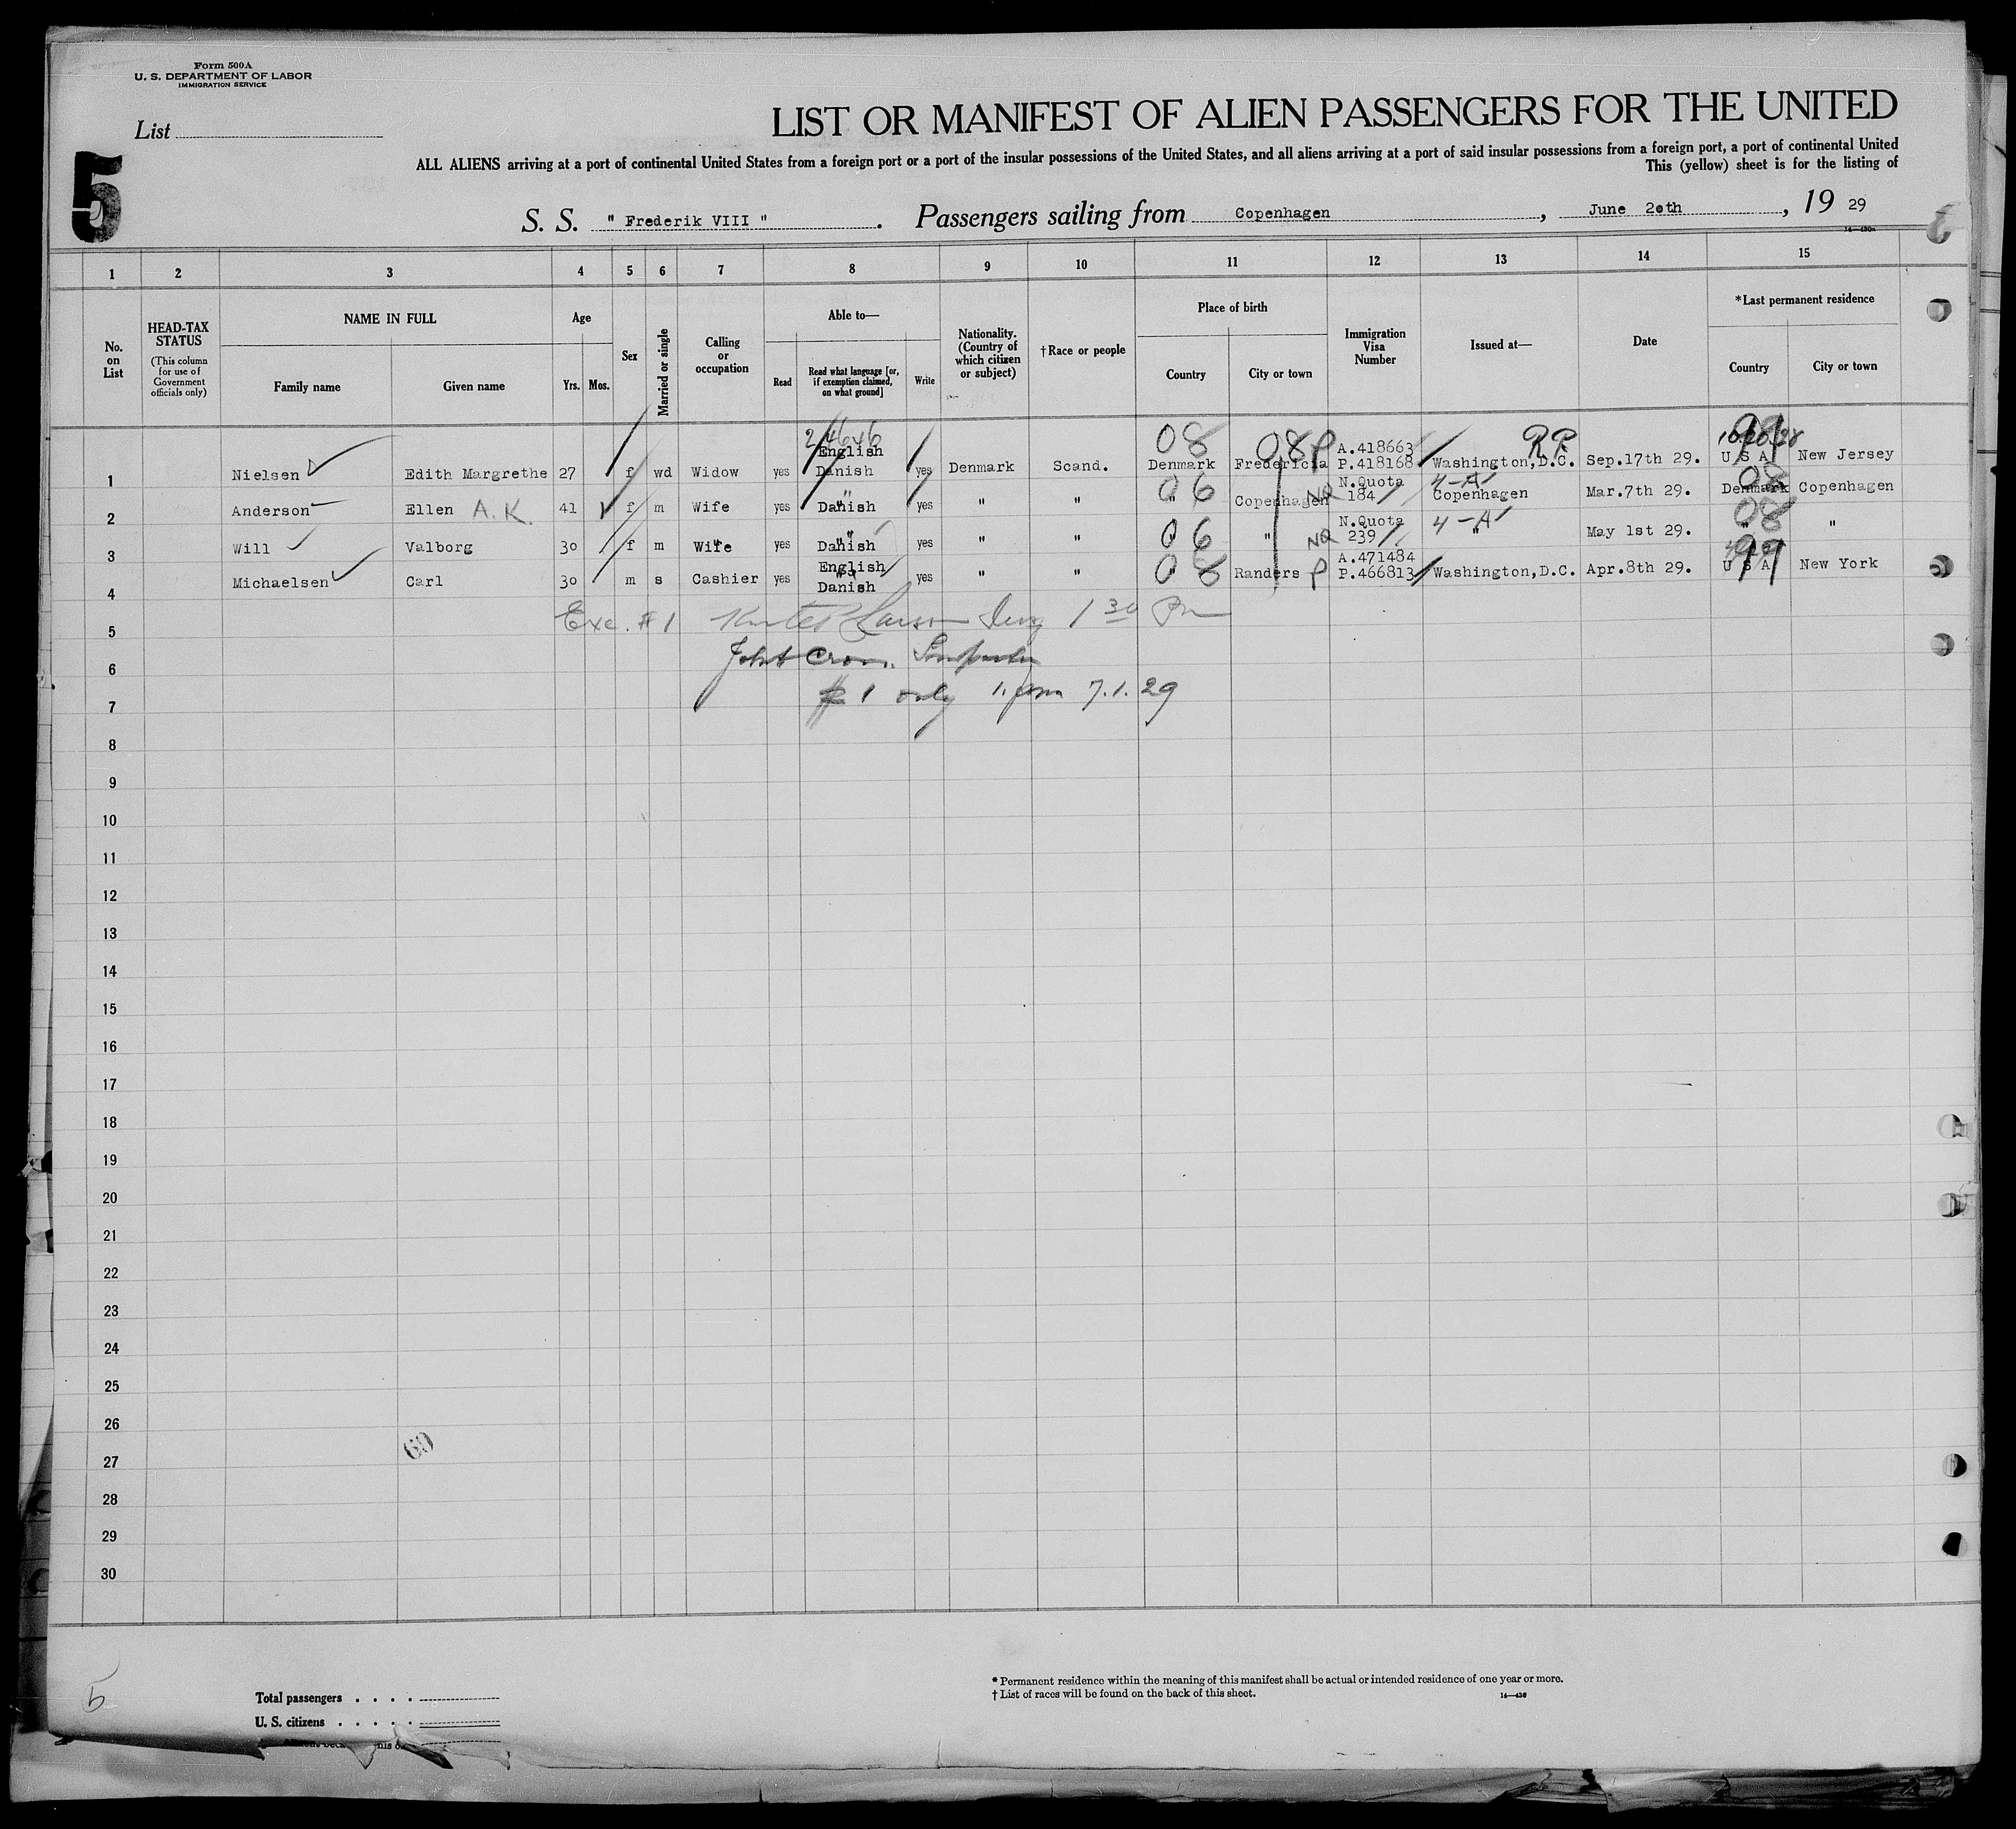 Form 500A
U. S. DEPARTMENT OF LABOR
IMMIGRATION SERVICE
List
5
LIST OR MANIFEST OF ALIEN PASSENGERS FOR THE UNITED
ALL ALIENS arriving at a port of continental United States from a foreign port or a port of the insular possessions of the United States, and all aliens arriving at a port of said insular possessions from a foreign port, a port of continental United
This (yellow) sheet is for the listing of
S. S. " Frederik VIII " . Passengers sailing from Copenhagen , June 20th , 19 29
1 2 3 4 5 6 7 8 9 10 11 12 13 14 15
No. on List
HEAD-TAX STATUS (This column for use of Government officials only)
NAME IN FULL
Family name Given name
Age
Yrs. Mos.
Sex
Married or single
Calling or occupation
Able to—
Read
Read what language [or, if exemption claimed, on what ground]
Write
Nationality. (Country of which citizen or subject)
†Race or people
Place of birth
Country City or town
Immigration Visa Number
Issued at—
Date
*Last permanent residence
Country City or town
1 Nielsen Edith Margrethe 27 f wd Widow yes English Danish yes Denmark Scand. 08 Denmark 08 P Fredericia A.418663 P.418168 RR Washington,D.C. Sep.17th 29. 99 U S A New Jersey
2 Anderson Ellen A.K. 41 f m Wife yes " Danish yes " " 06 " Copenhagen NQ N.Quota 184 4-A Copenhagen Mar.7th 29. 08 Denmark Copenhagen
3 Will Valborg 30 f m Wife yes " Danish yes " " 06 " " NQ N.Quota 239 4-A " May 1st 29. 08 " "
4 Michaelsen Carl 30 m s Cashier yes English Danish yes " " 08 " Randers P A.471484 P.466813 Washington,D.C. Apr.8th 29. 99 U S A New York
Exc. #1 1 30 Pm
5
6
#1 only 1. pm 7.1.29
7
8
9
10
11
12
13
14
15
16
17
18
19
20
21
22
23
24
25
26
60
27
28
29
30
5
* Permanent residence within the meaning of this manifest shall be actual or intended residence of one year or more.
† List of races will be found on the back of this sheet.
Total passengers . . . .
U. S. citizens . . . . .